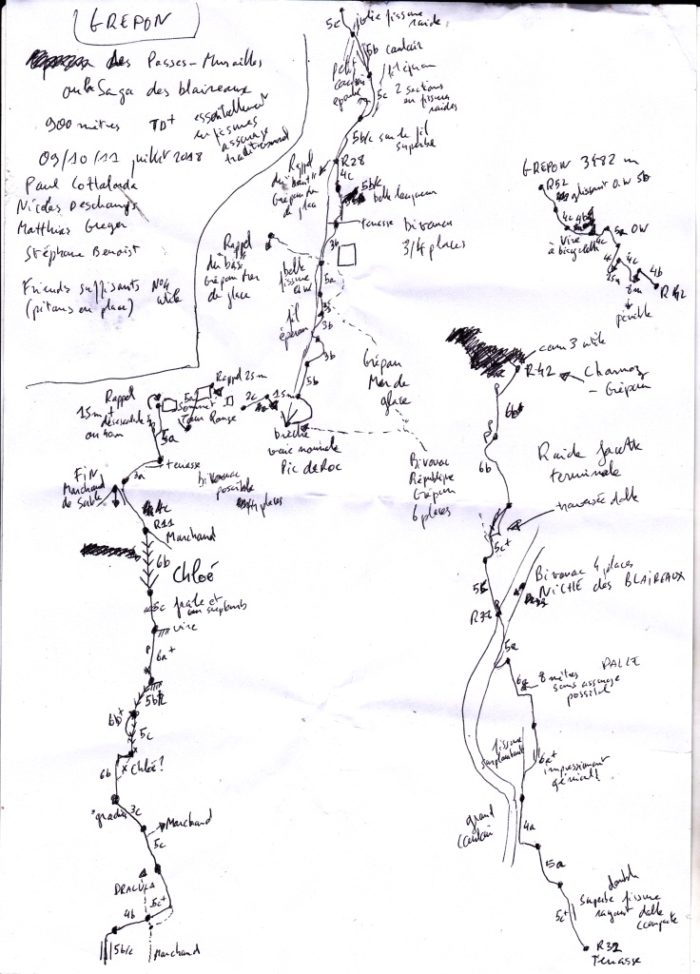 GREPON
des Passes-Murailles
ou la Saga des blaireaux
900 mètres TD+ essentiellement
en fissures
assurage
traditionnel
09/10/11 juillet 2018
Paul Cottalorda
Nicolas Deschamps
Matthias Greger
Stéphane Benoist
Friends suffisants N°4
utile
(pitons en place)
5c jolie fissure
raide
5b couloir
petit
5c 2 sections
en fissures
raides
5b/c sur le fil
superbe
Rappel
R28
4c
5b/c
belle longueur
terrasse bivouac
3/4 places
3b
Rappel
du bas
Grépon Mer
de glace
belle
fissure
5a
fil
éperon
3b
5b
Grépon
Mer de
glace
brèche
voie normale
Pic de Roc
Bivouac
République
Grépon
6 places
Rappel 25m
2c
15m
Rappel
15m
désescalade
5a
sommet
Tour Rouge
5a
terrasse
3a
bivouac
possible
places
FIN
Marchand
de Sable
4c
R11
Marchand
6b
Chloé
5c
vire
6a+
5b/c
6b+
5c
6b
Chloé?
gradin
3c
Marchand
5c
DRACULA
5c+
4b
5b/c
Marchand
GREPON 3482 m
R52
OW 5b
4c
4b
Vire
à bicyclette
5a OW
4c
4c
4b
R42
pénible
cam 3 utile
R42
Charmoz
- Grépon
6b+
6b
Raide facette
terminale
traversée dalle
5c+
5b
Bivouac 4 places
NICHE des BLAIREAUX
5a
DALLE
6a 8 mètres
sans assurage
possible
fissure
surplombante
6a+
impressionnant
grand
couloir
4a
5a
double
superbe fissure
rayant dalle
compacte
5c+
R32
Terrasse